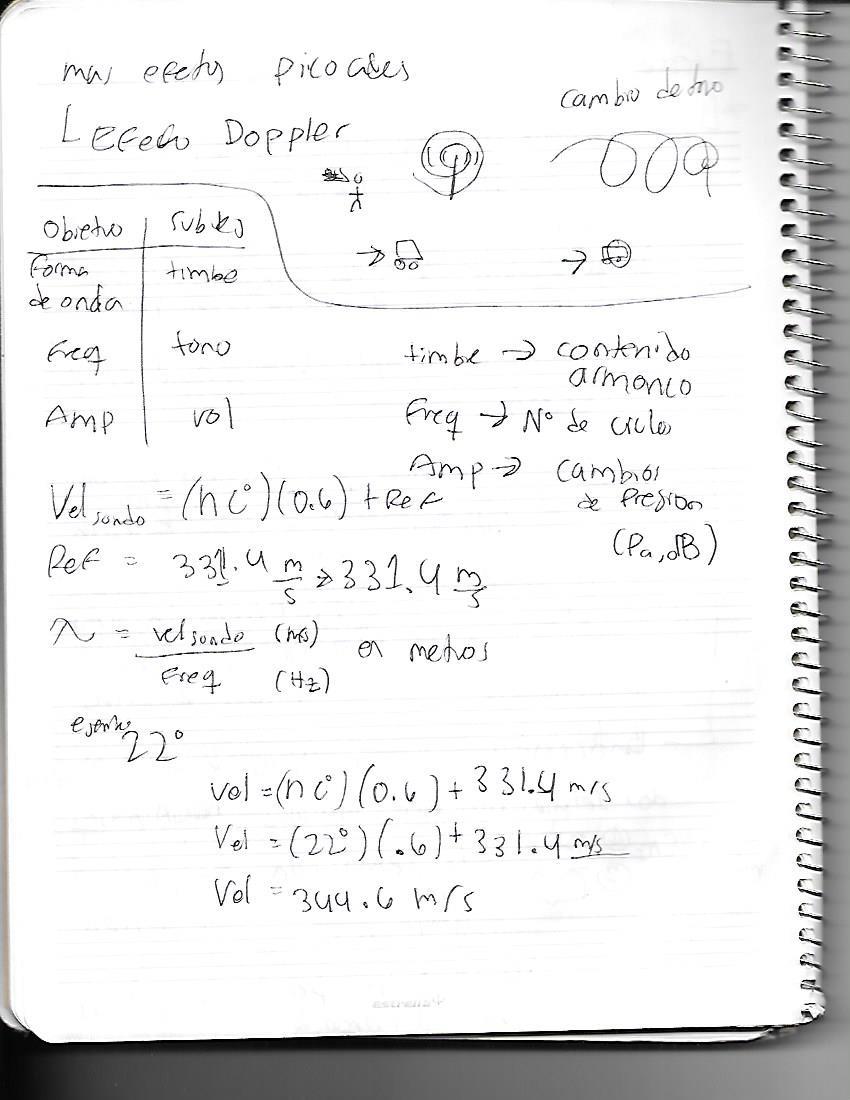 mas efectos
L Efecto Doppler
cambio de tono
Objetivo | Subtvo
Forma de onda | timbre
Freq | tono
Amp | vol
timbre → contenido
armonico
Freq → Nº de ciclos
Amp → Cambios
de Presion
(Pa, dB)
Vel sonido = (n C°)(0.6) + Ref
Ref = 331.4 m/s → 331.4 m/s
λ = vel sonido (m/s) / Freq (Hz) en metros
ejemplo
22°
vel = (n C°)(0.6) + 331.4 m/s
Vel = (22°)(.6) + 331.4 m/s
Vel = 344.6 m/s
estrella